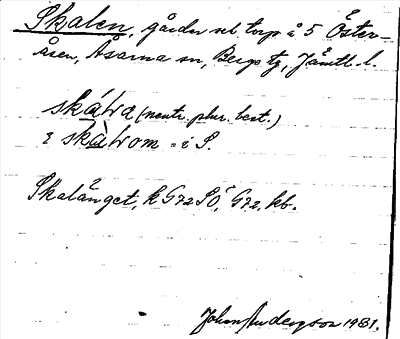 Skalen, gårdar vel torp i S Öster-
åsen, Åsarna sn, Bergs tg, Jämtl. l.
skálṛa (neutr. plur. best.)
i skàlrom = i S.
Skalänget, k G72 SÖ, G72, kb.
Johan Andersson 1931.